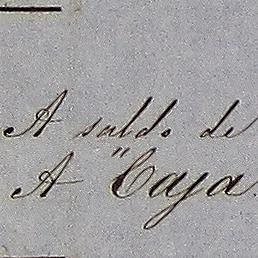 A saldo de
A "Caja